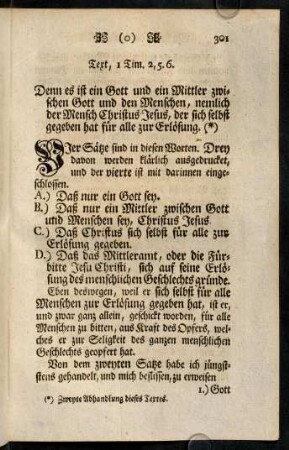 (o) 301
Text, 1 Tim. 2, 5. 6.
Denn es ist ein Gott und ein Mittler zwi-
schen Gott und den Menschen, nemlich
der Mensch Christus Jesus, der sich selbst
gegeben hat für alle zur Erlösung. (*)
Vier Sätze sind in diesen Worten. Drey
davon werden klärlich ausgedrucket,
und der vierte ist mit darinnen einge-
schlossen.
A.) Daß nur ein Gott sey.
B.) Daß nur ein Mittler zwischen Gott
und Menschen sey, Christus Jesus.
C.) Daß Christus sich selbst für alle zur
Erlösung gegeben.
D.) Daß das Mittleramt, oder die Für-
bitte Jesu Christi, sich auf seine Erlö-
sung des menschlichen Geschlechts gründe.
Eben deswegen, weil er sich selbst für alle
Menschen zur Erlösung gegeben hat, ist er,
und zwar ganz allein, geschickt worden, für alle
Menschen zu bitten, aus Kraft des Opfers, wel-
ches er zur Seligkeit des ganzen menschlichen
Geschlechts geopfert hat.
Von dem zweyten Satze habe ich jüngst-
stens gehandelt, und mich beflissen, zu erweisen
1.) Gott
(*) Zweyte Abhandlung dieses Textes.